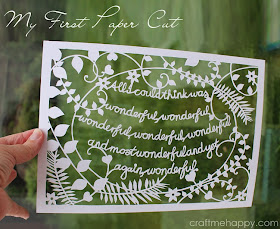 My First Paper Cut
All I could think was
wonderful, wonderful,
wonderful, wonderful, wonderful
and most wonderful and yet
again wonderful
craftmehappy.com